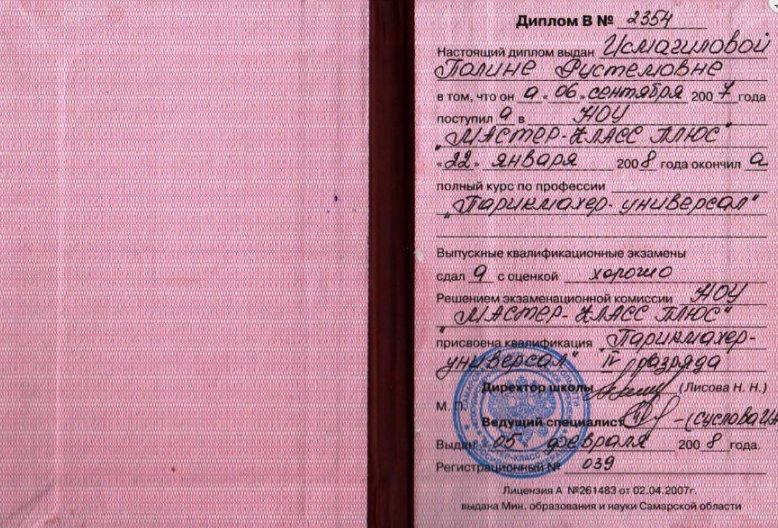 Диплом В № 2354
Настоящий диплом выдан Исмагиловой
Полине Рустемовне
в том, что он а «06» сентября 2007 года
поступил а в НОУ
"МАСТЕР-КЛАСС ПЛЮС"
«22» января 2008 года окончил а
полный курс по профессии
"Парикмахер-универсал"
Выпускные квалификационные экзамены
сдал а с оценкой хорошо
Решением экзаменационной комиссии НОУ
"МАСТЕР-КЛАСС ПЛЮС"
присвоена квалификация "Парикмахер-
универсал" IV разряда
Директор школы (Лисова Н. Н.)
М. П.
Ведущий специалист (Суслова
Выдан 05 февраля 2008 года.
Регистрационный № 039
Лицензия А №261483 от 02.04.2007г.
выдана Мин. образования и науки Самарской области